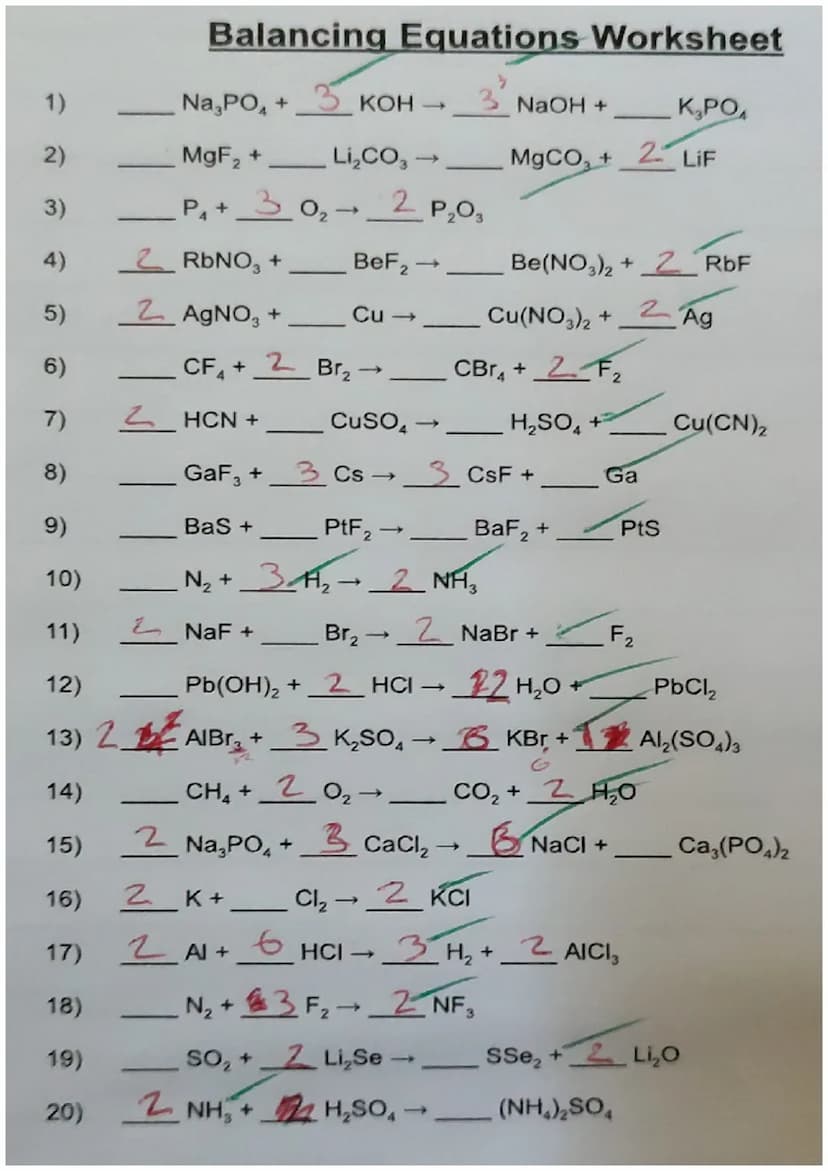 Balancing Equations Worksheet
1) ____ Na₃PO₄ + 3 KOH → 3 NaOH + ____ K₃PO₄
2) ____ MgF₂ + ____ Li₂CO₃ → ____ MgCO₃ + 2 LiF
3) ____ P₄ + 3 O₂ → 2 P₂O₃
4) 2 RbNO₃ + ____ BeF₂ → ____ Be(NO₃)₂ + 2 RbF
5) 2 AgNO₃ + ____ Cu → ____ Cu(NO₃)₂ + 2 Ag
6) ____ CF₄ + 2 Br₂ → ____ CBr₄ + 2 F₂
7) 2 HCN + ____ CuSO₄ → ____ H₂SO₄ + ____ Cu(CN)₂
8) ____ GaF₃ + 3 Cs → 3 CsF + ____ Ga
9) ____ BaS + ____ PtF₂ → ____ BaF₂ + ____ PtS
10) ____ N₂ + 3 H₂ → 2 NH₃
11) 2 NaF + ____ Br₂ → 2 NaBr + ____ F₂
12) ____ Pb(OH)₂ + 2 HCl → 2 H₂O + ____ PbCl₂
13) 2 AlBr₃ + 3 K₂SO₄ → 6 KBr + 1 Al₂(SO₄)₃
14) ____ CH₄ + 2 O₂ → ____ CO₂ + 2 H₂O
15) 2 Na₃PO₄ + 3 CaCl₂ → 6 NaCl + ____ Ca₃(PO₄)₂
16) 2 K + ____ Cl₂ → 2 KCl
17) 2 Al + 6 HCl → 3 H₂ + 2 AlCl₃
18) ____ N₂ + 3 F₂ → 2 NF₃
19) ____ SO₂ + 2 Li₂Se → ____ SSe₂ + 2 Li₂O
20) 2 NH₃ + ____ H₂SO₄ → ____ (NH₄)₂SO₄